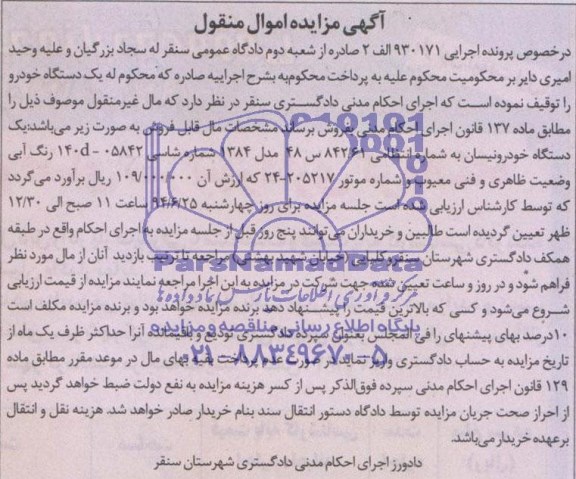 آگهی مزایده اموال منقول
درخصوص پرونده اجرایی ۹۳۰۱۷۱ الف ۲ صادره از شعبه دوم دادگاه عمومی سنقر له سجاد بزرگیان و علیه وحید
امیری دایر بر محکومیت محکوم علیه به پرداخت محکوم‌به بشرح اجراییه صادره که محکوم له یک دستگاه خودرو
را توقیف نموده است که اجرای احکام مدنی دادگستری سنقر در نظر دارد که مال غیرمنقول موصوف ذیل را
مطابق ماده ۱۳۷ قانون اجرای احکام مدنی بفروش برساند مشخصات مال قابل فروش به صورت زیر می‌باشد:یک
دستگاه خودرونیسان به شماره انتظامی ۸۴۲۶۱ س ۴۸ مدل ۱۳۸۴ شماره شاسی ۰۵۸۴۲ - ۱۴۰d رنگ آبی
وضعیت ظاهری و فنی معیوب و شماره موتور ۲۰۵۲۱۷-۲۴ که ارزش آن ۱۰۹/۰۰۰/۰۰۰ ریال برآورد می‌گردد
که توسط کارشناس ارزیابی شده است جلسه مزایده برای روز چهارشنبه ۹۴/۶/۲۵ ساعت ۱۱ صبح الی ۱۲/۳۰
ظهر تعیین گردیده است طالبین و خریداران می‌توانند پنج روز قبل از جلسه مزایده به اجرای احکام واقع در طبقه
همکف دادگستری شهرستان سنقروکلیایی (خیابان شهید بهشتی) مراجعه تا ترتیب بازدید آنان از مال مورد نظر
فراهم شود و در روز و ساعت تعیین شده جهت شرکت در مزایده به این اجرا مراجعه نمایند مزایده از قیمت ارزیابی
شروع می‌شود و کسی که بالاترین قیمت را پیشنهاد دهد برنده مزایده خواهد بود و برنده مزایده مکلف است
۱۰درصد بهای پیشنهای را فی‌المجلس بعنوان سپرده دادگستری تودیع و باقیمانده آنرا حداکثر ظرف یک ماه از
تاریخ مزایده به حساب دادگستری واریز نماید در صورت عدم پرداخت بقیه بهای مال در موعد مقرر مطابق ماده
۱۲۹ قانون اجرای احکام مدنی سپرده فوق‌الذکر پس از کسر هزینه مزایده به نفع دولت ضبط خواهد گردید پس
از احراز صحت جریان مزایده توسط دادگاه دستور انتقال سند بنام خریدار صادر خواهد شد. هزینه نقل و انتقال
برعهده خریدار می‌باشد.
دادورز اجرای احکام مدنی دادگستری شهرستان سنقر
ParsNamadData
مرکز فرآوری اطلاعات پارس نماد داده‌ها
پایگاه اطلاع رسانی مناقصه و مزایده
۰۲۱-۸۸۳۴۹۶۷۰-۵